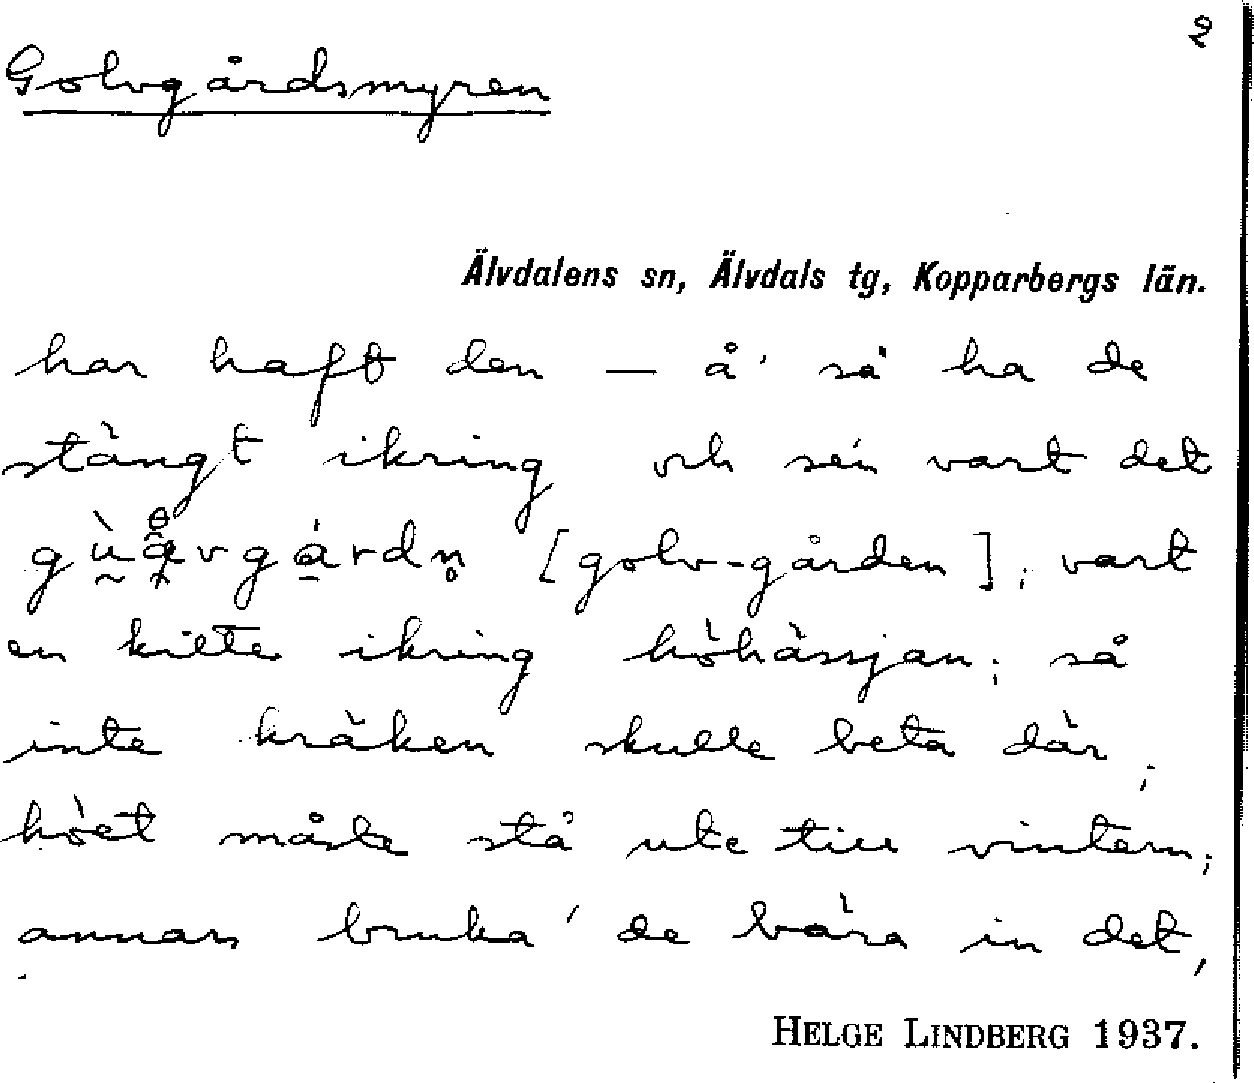 2
Golvgårdsmyren
Älvdalens sn, Älvdals tg, Kopparbergs län.
har haft den — å' så ha de
stängt ikring och sen vart det
[golv-gården]; vart
en ikring höhässjan; så
inte kräken skulle beta där;
höet måste stå ute till vintern;
annars bruka' de bära in det,
HELGE LINDBERG 1937.